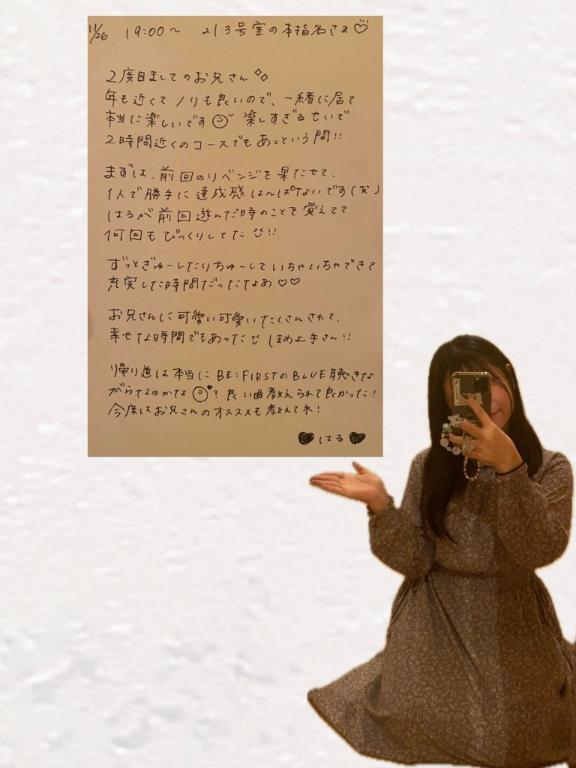 11/26 19:00〜 213号室の本指名さま♡
2度目ましてのお兄さん
年も近くてノリも良いので、一緒に居て
本当に楽しいです 楽しすぎるせいで
2時間近くのコースでもあっという間!!
まずは、前回のリベンジを果たせて、
1人で勝手に達成感はんぱないです(笑)
はるが前回遊んだ時のことを覚えてて
何回もびっくりしてた!!
ずっとぎゅーしたりちゅーしていちゃいちゃできて
充実した時間だったなあ♡♡
お兄さんに可愛い可愛いたくさんされて、
幸せな時間でもあった ほめ上手さん!!
帰り道は本当にBE:FIRSTのBLUE聴きな
がらなのかな? 良い曲教えられて良かった!
今度はお兄さんのオススメも教えてネ!
♥はる♥